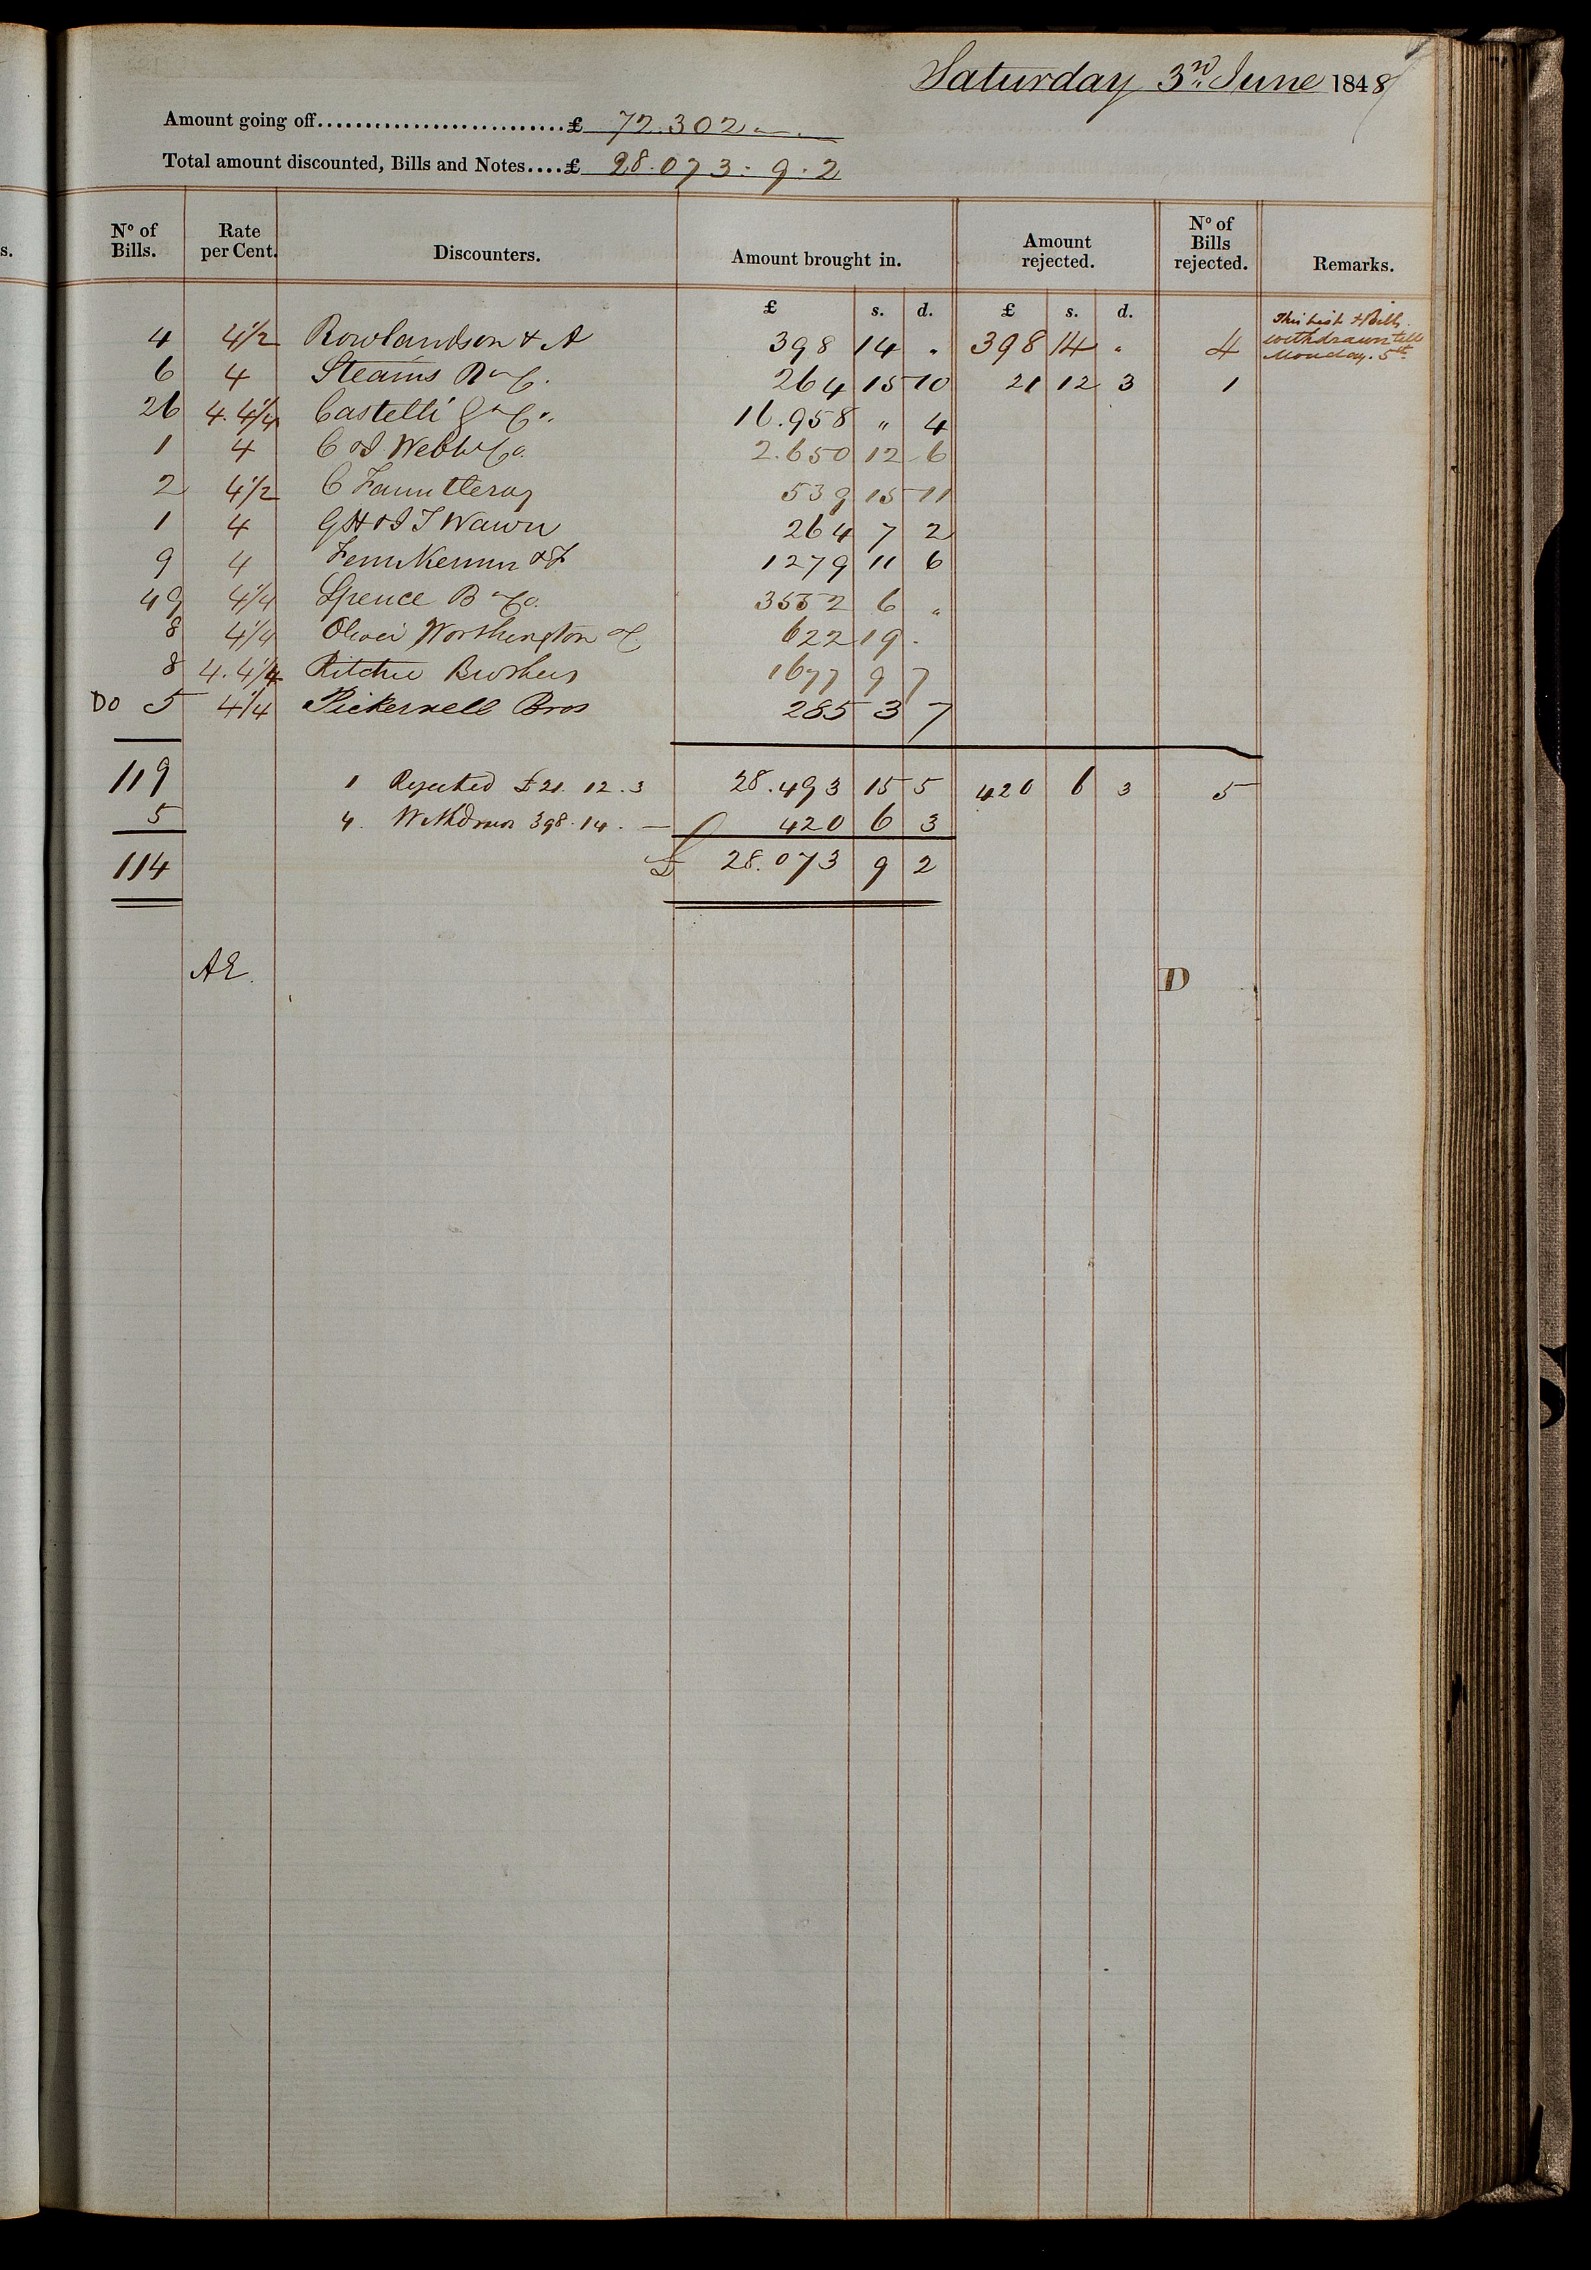 Saturday 3rd June 1848
Amount going off..........................£ 72.302 " — .
Total amount discounted, Bills and Notes....£ 28.073 . 9 . 2
s.
No of Bills. Rate per Cent. Discounters. Amount brought in. Amount rejected. No of Bills rejected. Remarks.
£ s. d. £ s. d.
4 4½ Rowlandson & A 398 14 " 398 14 " 4 This list & Bills
withdrawn till
Monday. 5th
6 4 Stearns B & C. 264 15 10 21 12 3 1
26 4.4¼ Castelli G & Co. 16.958 " 4
1 4 C & J Webb & Co. 2.650 12 6
2 4½ C Fauntleroy 539 15 11
1 4 GH & J T Wawn 264 7 2
9 4 Fenn 1279 11 6
49 4¼ Spence B & Co. 3552 6 "
8 4¼ Oliver Worthington & C 622 19 .
8 4.4¼ Ritchie Brothers 1677 9 7
Do 5 4¼ Pickernell Bros 285 3 7
119 1 Rejected £21. 12. 3 28.493 15 5 420 6 3 5
5 4. Withdrawn 398. 14. — 420 6 3
114 £ 28.073 9 2
AE. D